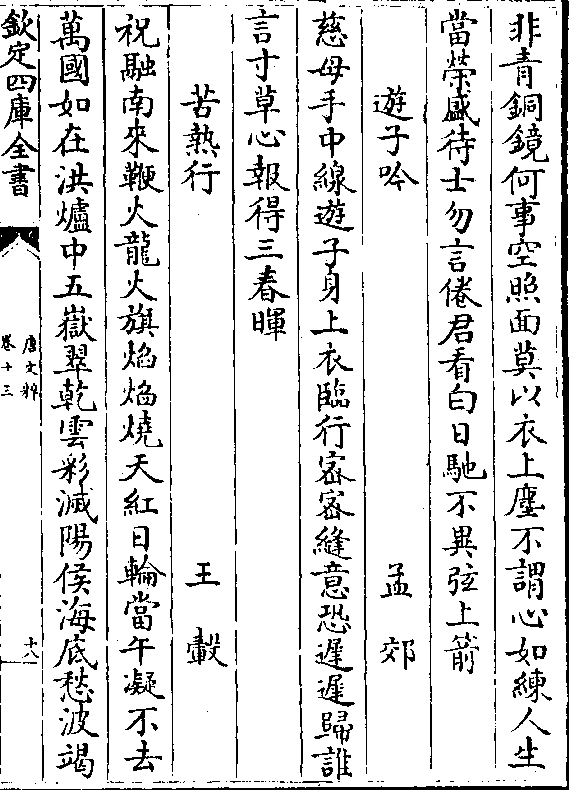 非青銅鏡何事空照面莫以衣上塵不謂心如練人生
當榮盛待士勿言倦君看白日馳不異弦上箭
遊子吟 孟郊
慈母手中線遊子身上衣臨行密密縫意恐遲遲歸誰
言寸草心報得三春暉
苦熱行 王轂
祝融南來鞭火龍火旗焰焰燒天紅日輪當午凝不去
萬國如在洪爐中五嶽翠乾雲彩滅陽侯海底愁波竭
欽定四庫全書
唐文粹
卷十三
十八